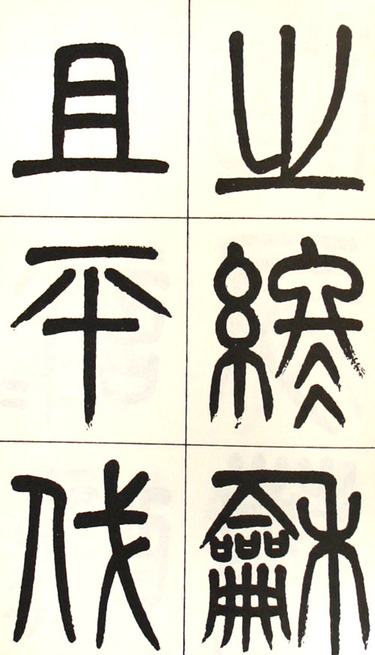 之終龢
且平伐